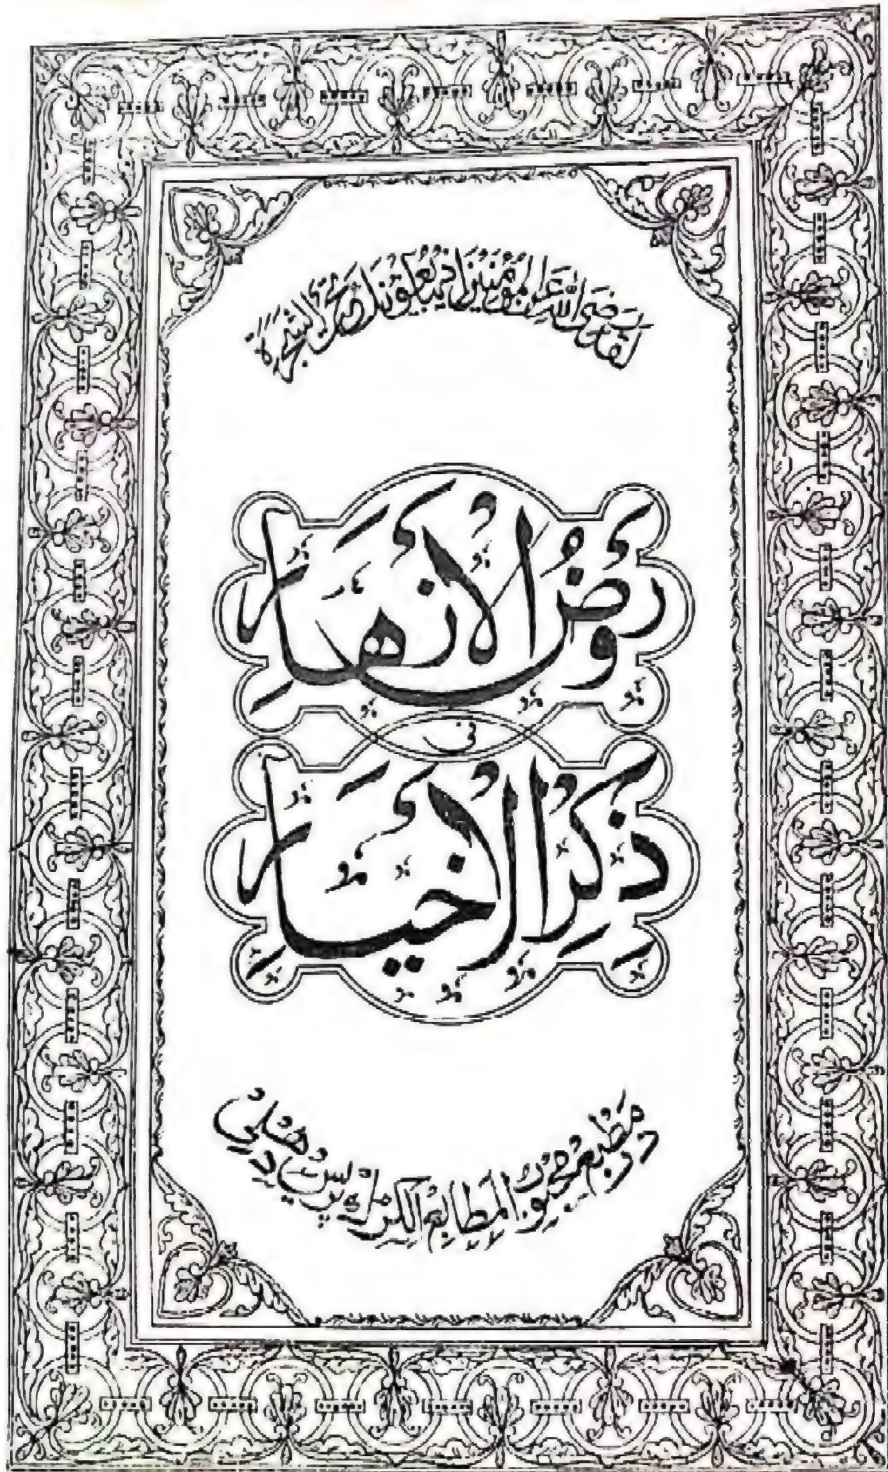 لقد رضی الله عن المؤمنین اذ یبایعونک تحت الشجرة
رَوضُ الاَزهَار
فی
ذِکرُ الاَخیَار
در مطبع محبوب المطابع الکٹرک پریس دهلی